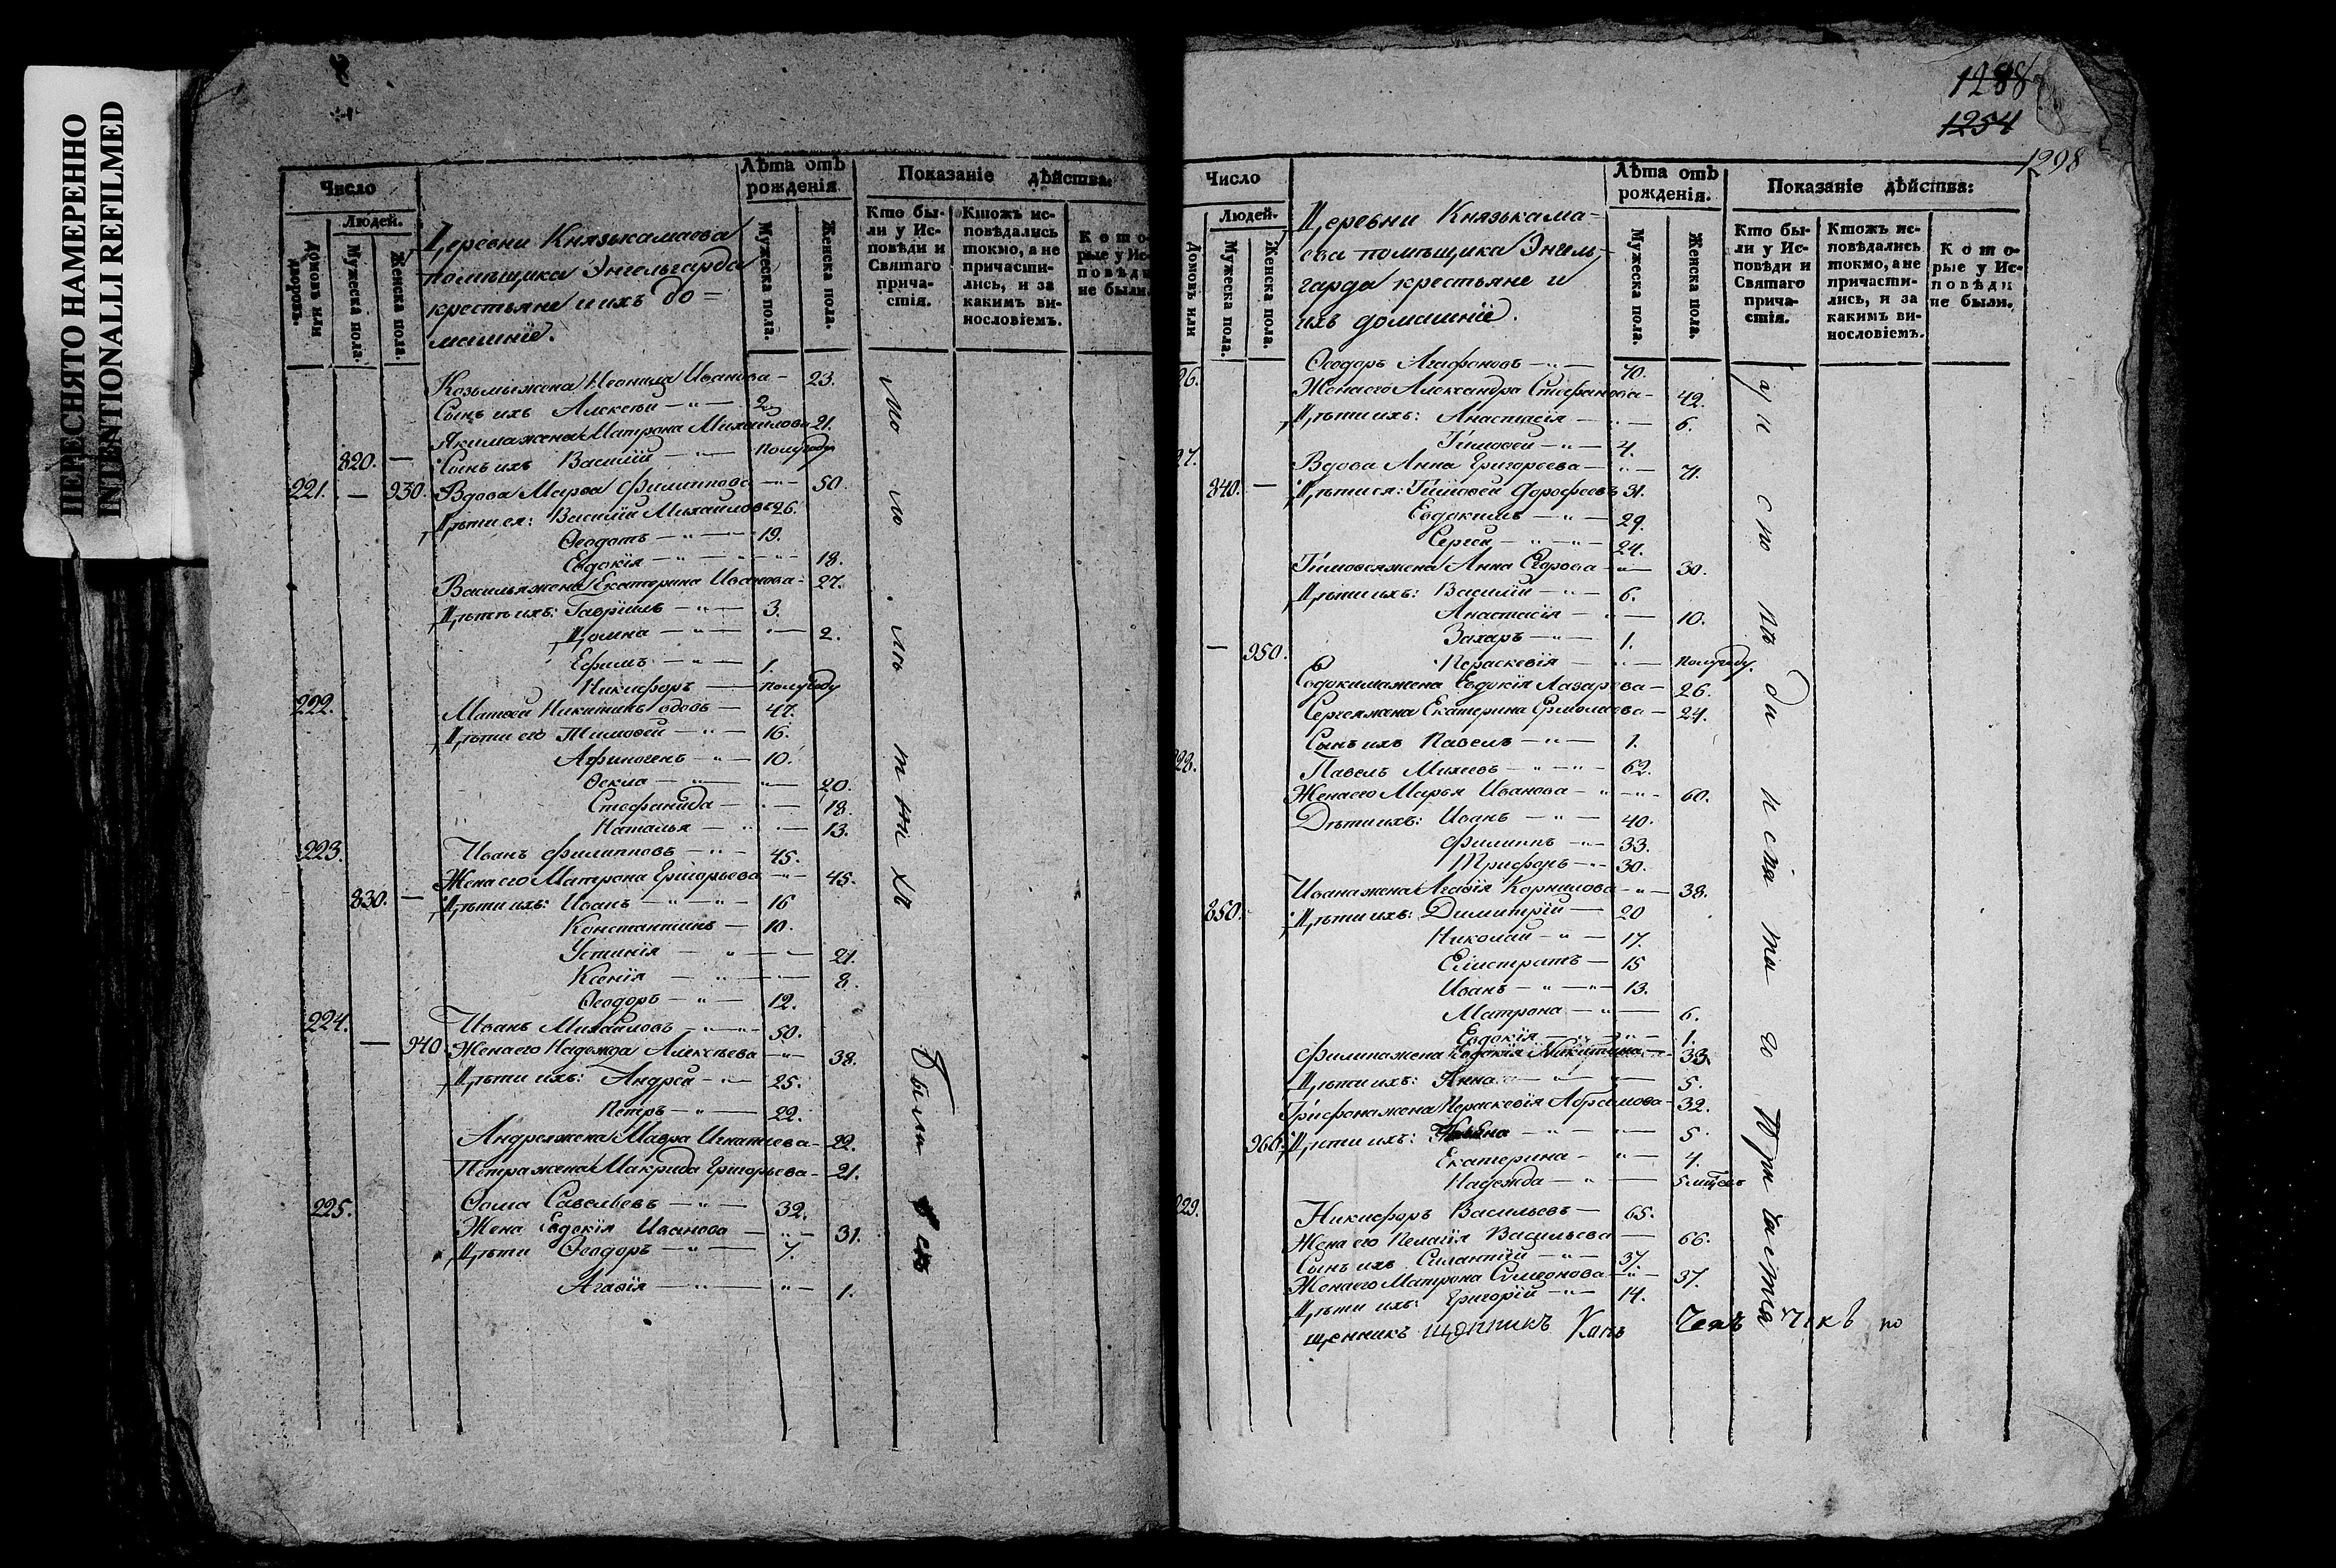 ПЕРЕСНЯТО НАМЕРЕННО
INTENTIONALLI REFILMED
Число
Людей.
Домовъ или дворовъ.
Мужеска пола.
Женска пола.
Деревни Князькамаева
помѣщика Энгельгарда
крестьяне и ихъ до=
машніе.
Лѣта отъ рожденія
Мужеска пола.
Женска пола.
Показаніе дѣйства:
Кто бы-
ли у Ис-
повѣди и
Святаго
прича-
стія.
Ктожъ ис-
повѣдались
токмо, а не
причасти-
лись, и за
какимъ ви-
нословіемъ.
Кото-
рые у Ис-
повѣди
не были.
Козьмы жена Неонила Иванова - 23.
Сынъ ихъ Алексѣй - 2.
Якима жена Матрона Михайлова 21.
820. — Сынъ ихъ Василій — полугоду
221. — 930. Вдова Марѳа Филиппова — 50.
Дѣти ея: Василій Михайловъ 26.
Ѳеодотъ — 19.
Евдокія — 18.
Василья жена Екатерина Иванова - 27.
Дѣти ихъ: Гавріилъ — 3.
Домна — 2.
Ефимъ — 1.
Никифоръ — полугоду
222. Матвей Никитинъ вдовъ — 47.
Дѣти его Тимоѳей — 16.
Афиногенъ — 10.
Ѳекла — 20.
Стефанида — 18.
Наталья — 13.
223. Иванъ Филипповъ — 45.
Жена его Матрона Григорьева — 45.
830. — Дѣти ихъ: Иванъ — 16
Константинъ — 10.
Устинія — 21.
Ксенія — 8.
Ѳеодоръ — 12.
224. Иванъ Михайловъ — 50.
— 940. Жена его Надежда Алексѣева — 38.
Дѣти ихъ: Андрей — 25.
Петръ — 22.
Андрея жена Мавра Игнатиева - 22.
Петра жена Макрида Григорьева - 21.
225. Ѳома Савельевъ — 32.
Жена Евдокія Иванова — 31.
Дѣти Ѳеодоръ — 7.
Агаѳія — 1.
были
1288
1254
1298
Число
Людей.
Домовъ или
Мужеска пола.
Женска пола.
Деревни Князькама-
ева помѣщика Энгель-
гарда крестьяне и
ихъ домашніе.
Лѣта отъ рожденія.
Мужеска пола.
Женска пола.
Показаніе дѣйства:
Кто бы-
ли у Ис-
повѣди и
Святаго
прича-
стія.
Ктожъ ис-
повѣдались
токмо, а не
причасти-
лись, и за
какимъ ви-
нословіемъ.
Кото-
рые у Ис-
повѣди
не были.
26. Ѳеодоръ Агафоновъ — 70.
Жена его Александра Стефанова - 42.
Дѣти ихъ: Анастасія — 6.
Тимоѳей — 4.
27. Вдова Анна Григорьева — 71.
840. — Дѣти ея: Тимоѳей Дорофеевъ 31.
Евдокимъ — 29.
Сергей — 24.
Тимоѳея жена Анна Егорова — 30.
Дѣти ихъ: Василій — 6.
Анастасія — 10.
Захаръ — 1.
— 950. Параскевія — полугоду.
Евдокима жена Евдокія Лазарева — 26.
Сергея жена Екатерина Ермолаева — 24.
Сынъ ихъ Павелъ — 1.
228. Павелъ Михеевъ — 62.
Жена его Марья Иванова — 60.
Дѣти ихъ: Иванъ — 40.
Филиппъ — 33.
Трифонъ — 30.
Ивана жена Агаѳія Корнилова — 38.
850. Дѣти ихъ: Димитрій — 20
Николай — 17.
Елистратъ — 15
Иванъ — 13.
Матрона — 6.
Евдокія — 1.
Филипа жена Евдокія Никитина — 33.
Дѣти ихъ: Анна — 5.
Трифона жена Параскевія Абрамова - 32.
960. Дѣти ихъ: — 5.
Екатерина — 4.
Надежда — 5 мѣсе
229. Никифоръ Васильевъ — 65.
Жена его Пелагія Васильева — 66.
Сынъ ихъ Силантій — 37.
Жена его Матрона Симеонова — 37.
Дѣти ихъ: Григорій — 14.
щенникъ